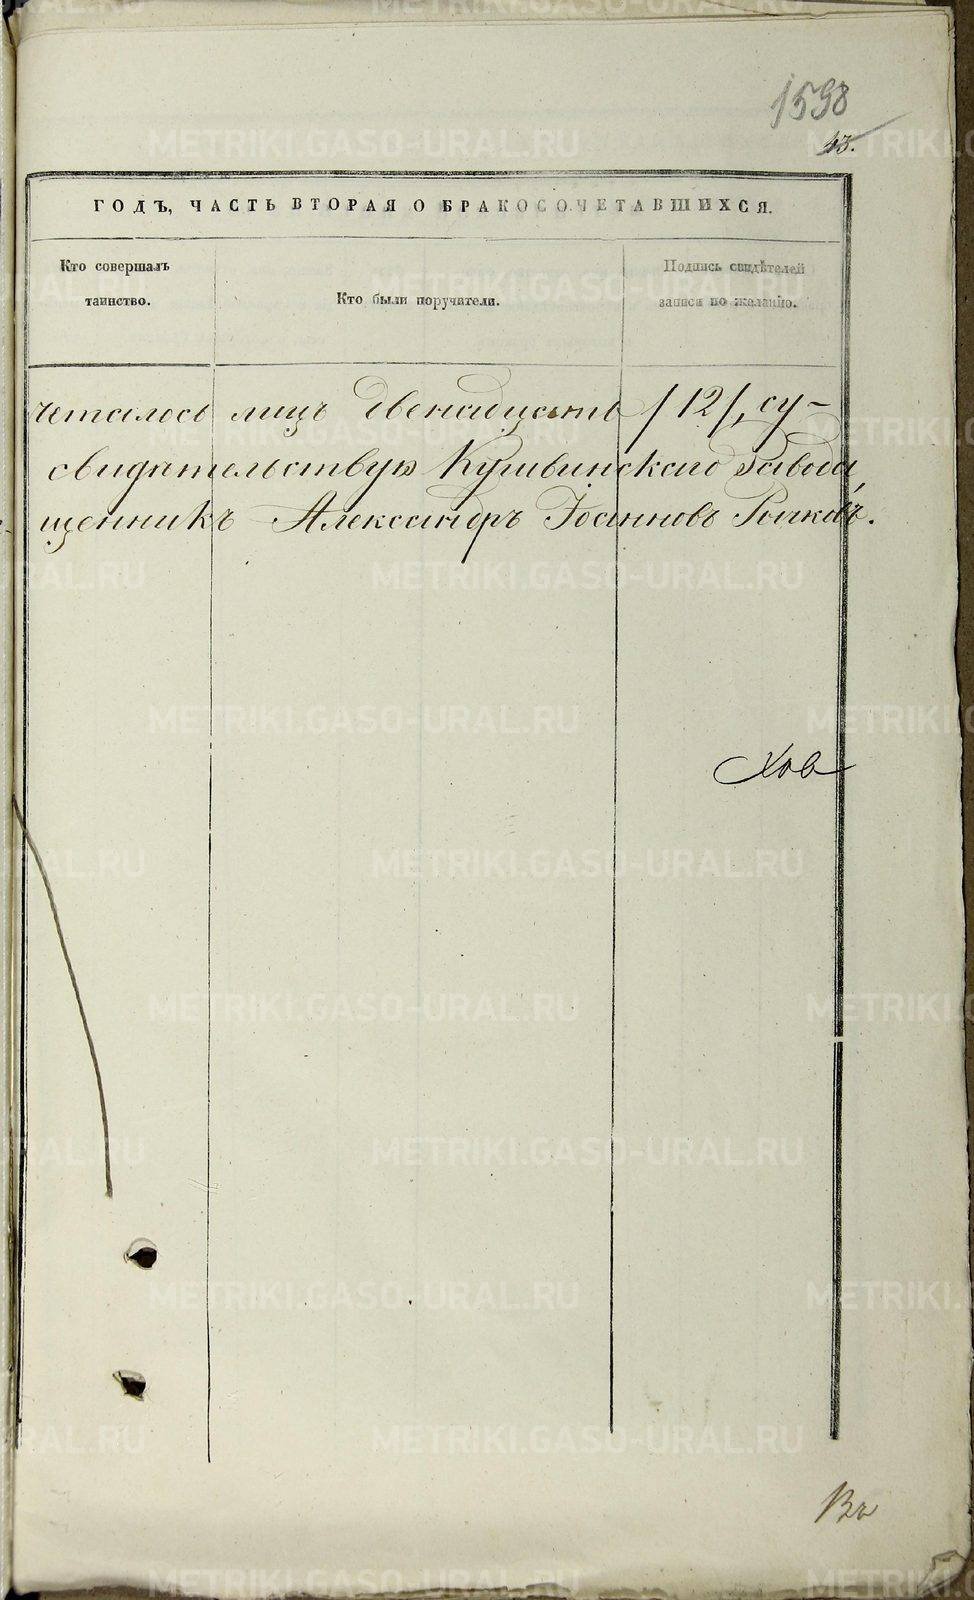 1598
43.
ГОДЪ, ЧАСТЬ ВТОРАЯ О БРАКОСОЧЕТАВШИХСЯ.
Кто совершалъ
таинство.
Кто были поручатели.
Подпись свидѣтелей
записи по желанію.
четалось лицъ двенадцать /12/, су-
свидѣтельствую Кушвинскаго завода,
щенникъ Александръ Іоанновъ
хов
Въ
METRIKI.GASO-URAL.RU